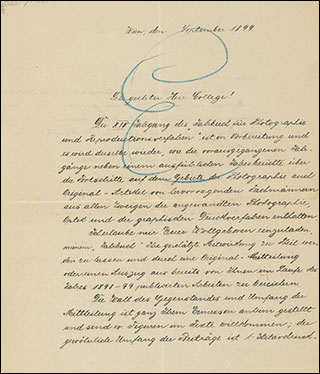 Wien, den September 1899
Geehrter Herr College!
Der XIV Jahrgang des „Jahrbuch für Photographie
und Reproductionsverfahren" ist in Vorbereitung und
es wird derselbe wieder, wie die vorausgegangenen Jahr-
gänge neben einem ausführlichen Jahresberichte über
die Fortschritte auf dem Gebiete der Photographie auch
Original-Artikel von hervorragenden Fachmännern
aus allen Zweigen der angewandten Photographie,
Optik und der graphischen Druckverfahren enthalten.
Ich erlaube mir Euer Wohlgeboren einzuladen,
meinem „Jahrbuch" Ihre geschätzte Mitwirkung zu Theil wer-
den zu lassen und durch eine Original-Mittheilung
oder einen Auszug aus bereits von Ihnen im Laufe des
Jahres 1898-99 publicirten Arbeiten zu bereichern
Die Wahl des Gegenstandes und Umfang der
Mittheilung ist ganz Ihrem Ermessen anheim gestellt
und sind Figuren im Texte willkommen; der
gewöhnliche Umfang der Beiträge ist